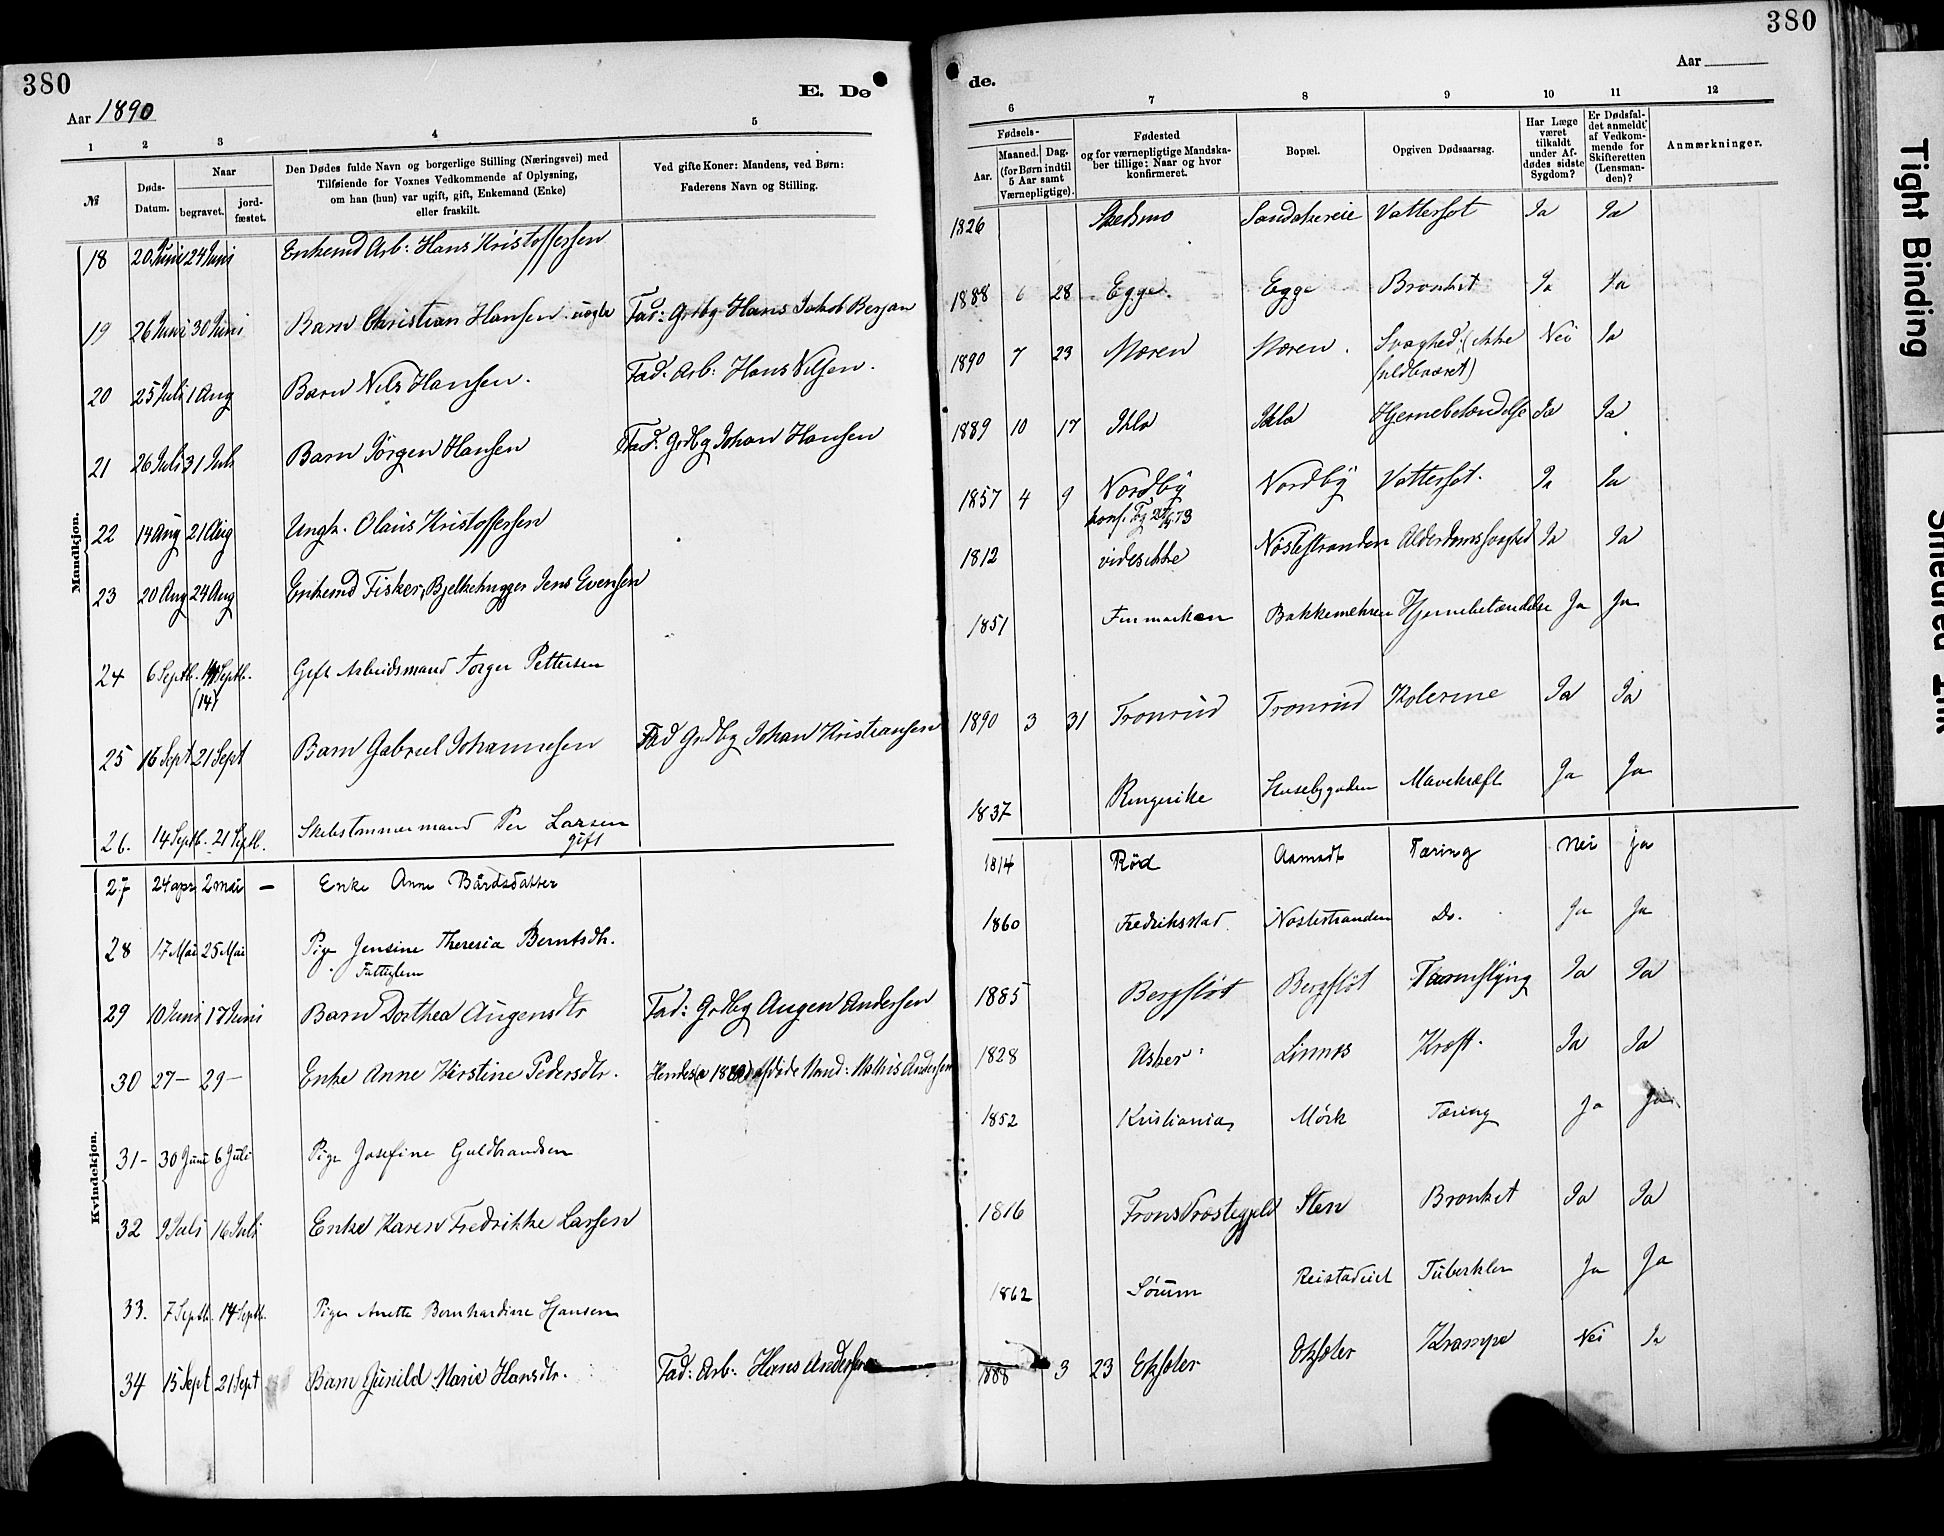 380
Aar 1890
E. Dø
1 2 3 4 5
№
Døds-
Datum.
Naar
begravet.
jord-
fæstet.
Den Dødes fulde Navn og borgerlige Stilling (Næringsvei) med
Tilføiende for Voxnes Vedkommende af Oplysning,
om han (hun) var ugift, gift, Enkemand (Enke)
eller fraskilt.
Ved gifte Koner: Mandens, ved Børn:
Faderens Navn og Stilling.
Mandkjøn.
18 20 Juni 24 Juni Enkemd Arb: Hans Kristoffersen
19 26 Juni 30 Juni Barn Christian Hansen uægte Fad: Grdbg Hans Jakob Berjan
20 25 Juli 1 Aug Barn Nils Hansen. Fad: Arb: Hans Nilsen.
21 26 Juli 31 Juli Barn Jörgen Hansen Fad: Grdbg Johan Hansen
22 14 Aug 21 Aug Ungk. Olaus Kristoffersen
23 20 Aug 24 Aug Enkemd Fisker, Bjelkehugger Jens Evensen
24 6 Septb. Septb. Gift Arbeidsmand Torger Pettersen
(14)
25 16 Sept 21 Sept Barn Gabriel Johannesen Fad Grdbg Johan Kristiansen
26. 14 Septb. 21 Septb. Skibstømmermand Per Larsen
gift
Kvindekjøn.
27 24 apr 2 mai — Enke Anne Bårdsdatter
28 17 Mai 25 Mai Pige Jensine Theresia Berntsdtr.
Fattiglem
29 10 Juni 17 Juni Barn Dorthea Augensdtr Fad: Grdbg Augen Andersen
30 27 — 29 — Enke Anne Kirstine Pedersdtr. Hendes afdöde Mand: Mathis Andersen
31 - 30 Juni 6 Juli Pige Josefine Guldbrandsen
32 9 Juli 16 Juli Enke Karen Fredrikke Larsen
33. 7 Septb. 14 Septb. Pige Anette Bernhardine Hansen
34 15 Sept 21 Sept Barn Gunild Marie Hansdtr. Fad: Arb: Hans Andersen
380
Aar
de.
6 7 8 9 10 11 12
Fødsels-
Aar.
Maaned. Dag.
(for Børn indtil
5 Aar samt
Værnepligtige).
Fødested
og for værnepligtige Mandska-
ber tillige: Naar og hvor
konfirmeret.
Bopæl.
Opgiven Dødsaarsag.
Har Læge
været
tilkaldt
under Af-
dødes sidste
Sygdom?
Er Dødsfal-
det anmeldt
af Vedkom-
mende for
Skifteretten
(Lensman-
den)?
Anmærkninger.
1826 Skedsmo Sandakereie Vattersot Ja Ja
1888 6 28 Egge. Egge Bronkit Ja Ja
1890 7 23 Moren Moren. Svaghed. (ikke Nei Ja
fuldbaaret)
1889 10 17 Ihle Ihle Hjernebetændelse Ja Ja
1857 4 9 Nordby Nordby Vattersot. Ja Ja
1812 vides ikke Nöstestranden Alderdomssvaghed Ja Ja
1851 Finmarken Bakkemehren Hjernebetændelse Ja Ja
1890 3 31 Tronrud Tronrud Kolerine Ja Ja
1837 Ringerike Husebygaden Mavekræft Ja Ja
1814 Röd Aamodt Tæring Nei Ja
1860 Fredriksstad. Nøstestranden Do. Ja Ja
1885 Bergflöt Bergflöt Tarmslyng Ja Ja
1828 Asker Linnes Kræft. Ja Ja
1852 Kristiania, Mörk Tæring Ja Ja
1816 Frons Præstegjeld Sten Bronkit Ja Ja
1862 Sörum Reistadeiet Tuberkler Ja Ja
1888 3 23 Eksoler Eksoler Krampe Nei Ja
Tight Binding
Smeared Ink